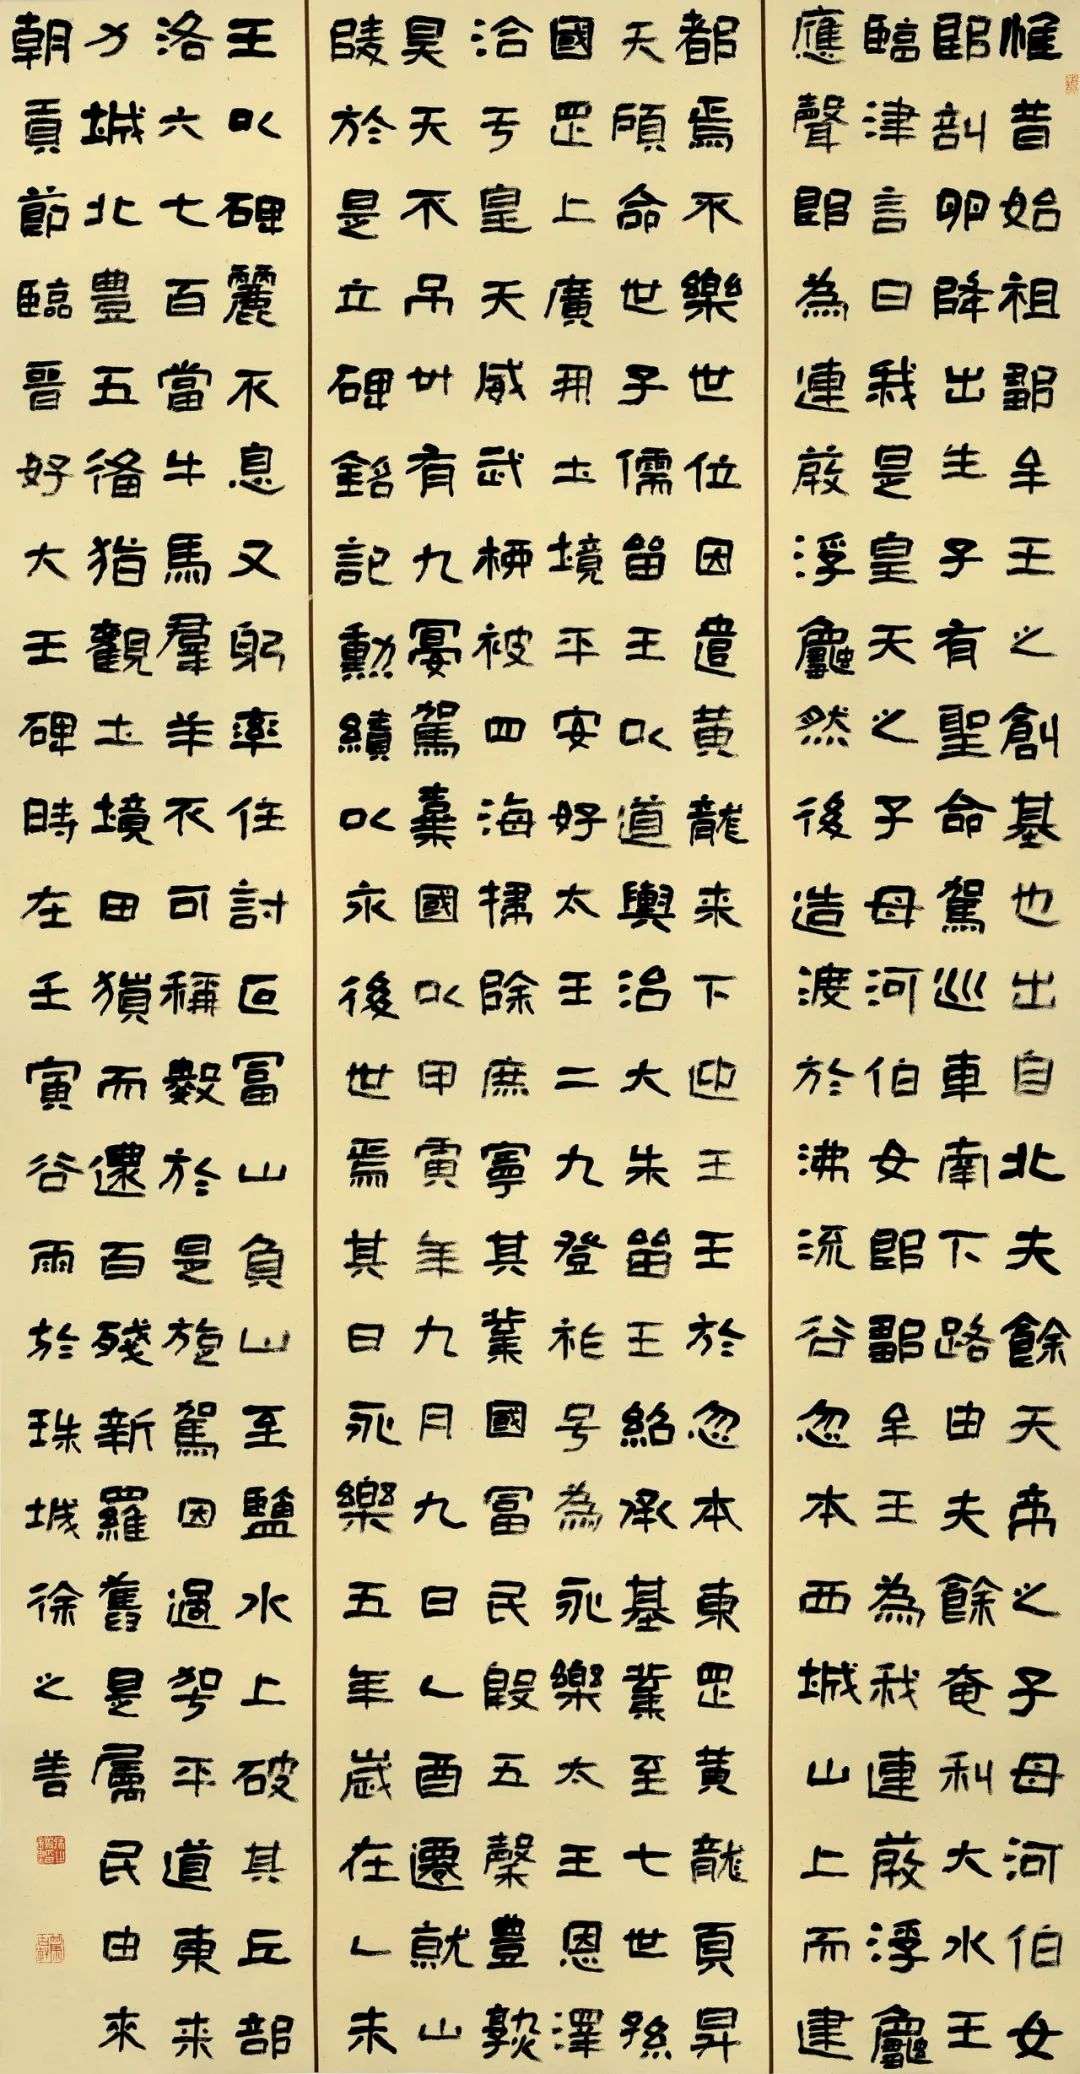 惟昔始祖鄒牟王之創基也出自北夫餘天帝之子母河伯女
郎剖卵降出生子有聖命駕巡車南下路由夫餘奄利大水王
臨津言曰我是皇天之子母河伯女郎鄒牟王為我連葭浮龜
應聲即為連葭浮龜然後造渡於沸流谷忽本西城山上而建
都焉不樂世位因遣黃龍来下迎王王於忽本東罡黃龍頁昇
天顧命世子儒留王以道輿治大朱留王紹承基業至七世孫
國罡上廣開土境平安好太王二九登祚号為永樂太王恩澤
洽于皇天威武柳被四海掃除庶寧其業國富民殷五穀豐熟
昊天不弔卅有九宴駕棄國以甲寅年九月九日乙酉遷就山
陵於是立碑銘記勳績以永後世焉其曰永樂五年歲在乙未
王以碑麗不息又躬率住討叵富山負山至鹽水上破其丘部
洛六七百當牛馬羣羊不可稱數於是旋駕因過袈平道東来
力城北豐五備猶觀土境田獵而還百殘新羅舊是屬民由來
朝貢節臨晉好大王碑時在壬寅谷雨於珠城徐之善